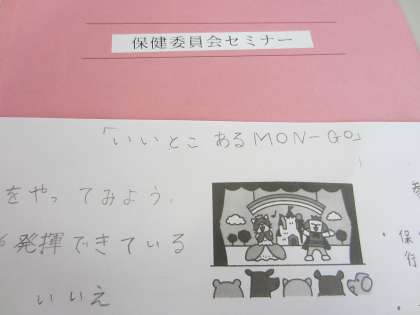 保健委員会セミナー
「いいとこ あるMON-GO」
をやってみよう。
発揮できている
いいえ
保
行